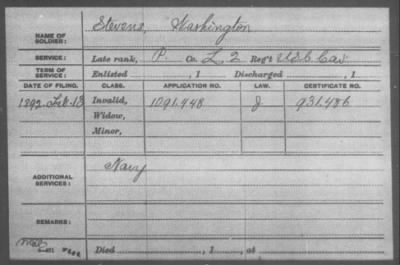 Stevens, Washington
NAME OF SOLDIER:
SERVICE: Late rank, P. Co. L, 2 Reg't U.S.C. Cav.
TERM OF SERVICE: Enlisted , 1 Discharged , 1
DATE OF FILING. CLASS. APPLICATION NO. LAW. CERTIFICATE NO.
1892. Feb. 13 Invalid, 1091.448 J 931.486
Widow,
Minor,
Navy
ADDITIONAL SERVICES:
REMARKS:
Died , 1 , at